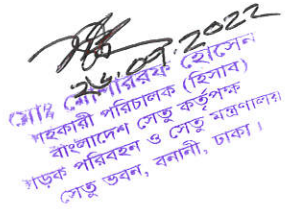 ২৬.০৭.2022
মোঃ মোশাররফ হোসেন
সহকারী পরিচালক (হিসাব)
বাংলাদেশ সেতু কর্তৃপক্ষ
সড়ক পরিবহন ও সেতু মন্ত্রণালয়
সেতু ভবন, বনানী, ঢাকা।